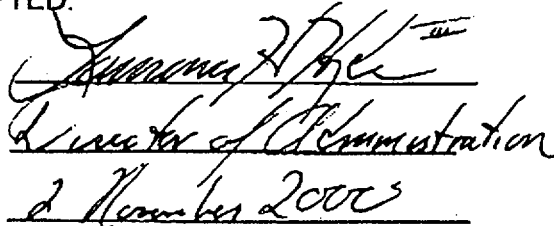 TED:
H III
Director of Administration
2 November 2000